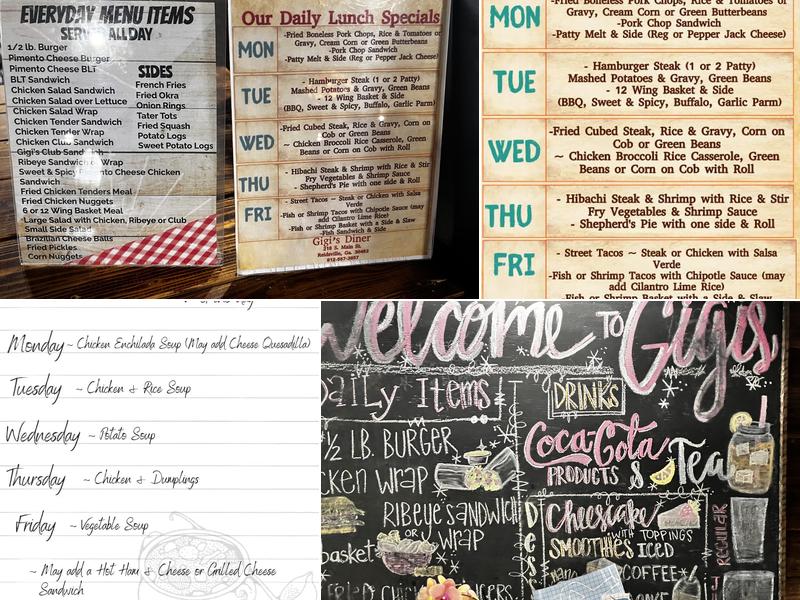 EVERYDAY MENU ITEMS
SERVED ALL DAY
1/2 lb. Burger
Pimento Cheese Burger
Pimento Cheese BLT
BLT Sandwich
Chicken Salad Sandwich
Chicken Salad over Lettuce
Chicken Salad Wrap
Chicken Tender Sandwich
Chicken Tender Wrap
Chicken Club Sandwich
Gigi's Club Sandwich
Ribeye Sandwich or Wrap
Sweet & Spicy Pimento Cheese Chicken
Sandwich
Fried Chicken Tenders Meal
Fried Chicken Nuggets
6 or 12 Wing Basket Meal
Large Salad with Chicken, Ribeye or Club
Small Side Salad
Brazilian Cheese Balls
Fried Pickles
Corn Nuggets
SIDES
French Fries
Fried Okra
Onion Rings
Tater Tots
Fried Squash
Potato Logs
Sweet Potato Logs
Our Daily Lunch Specials
MON
-Fried Boneless Pork Chops, Rice & Tomatoes or
Gravy, Cream Corn or Green Butterbeans
-Pork Chop Sandwich
-Patty Melt & Side (Reg or Pepper Jack Cheese)
TUE
- Hamburger Steak (1 or 2 Patty)
Mashed Potatoes & Gravy, Green Beans
- 12 Wing Basket & Side
(BBQ, Sweet & Spicy, Buffalo, Garlic Parm)
WED
-Fried Cubed Steak, Rice & Gravy, Corn on
Cob or Green Beans
~ Chicken Broccoli Rice Casserole, Green
Beans or Corn on Cob with Roll
THU
- Hibachi Steak & Shrimp with Rice & Stir
Fry Vegetables & Shrimp Sauce
- Shepherd's Pie with one side & Roll
FRI
- Street Tacos ~ Steak or Chicken with Salsa
Verde
-Fish or Shrimp Tacos with Chipotle Sauce (may
add Cilantro Lime Rice)
-Fish or Shrimp Basket with a Side & Slaw
-Fish Sandwich & Side
Gigi's Diner
S. Main St.
Reidsville, Ga. 30453
912-557-3857
MON
-Fried Boneless Pork Chops, Rice & Tomatoes or
Gravy, Cream Corn or Green Butterbeans
-Pork Chop Sandwich
-Patty Melt & Side (Reg or Pepper Jack Cheese)
TUE
- Hamburger Steak (1 or 2 Patty)
Mashed Potatoes & Gravy, Green Beans
- 12 Wing Basket & Side
(BBQ, Sweet & Spicy, Buffalo, Garlic Parm)
WED
-Fried Cubed Steak, Rice & Gravy, Corn on
Cob or Green Beans
~ Chicken Broccoli Rice Casserole, Green
Beans or Corn on Cob with Roll
THU
- Hibachi Steak & Shrimp with Rice & Stir
Fry Vegetables & Shrimp Sauce
- Shepherd's Pie with one side & Roll
FRI
- Street Tacos ~ Steak or Chicken with Salsa
Verde
-Fish or Shrimp Tacos with Chipotle Sauce (may
add Cilantro Lime Rice)
-Fish or Shrimp Basket with a Side & Slaw
Monday ~ Chicken Enchilada Soup (May add Cheese Quesadilla)
Tuesday ~ Chicken & Rice Soup
Wednesday ~ Potato Soup
Thursday ~ Chicken & Dumplings
Friday ~ Vegetable Soup
~ May add a Hot Ham & Cheese or Grilled Cheese
Sandwich
Welcome TO Gigi's
Daily Items
1/2 LB. BURGER
cken WRAP
RIBEYE SANDWICH
OR WRAP
basket
FRIED CHICKEN
DRINKS
Coca-Cola
PRODUCTS & Tea
Cheesecake
WITH TOPPINGS
SMOOTHIES ICED
COFFEE
REGULAR